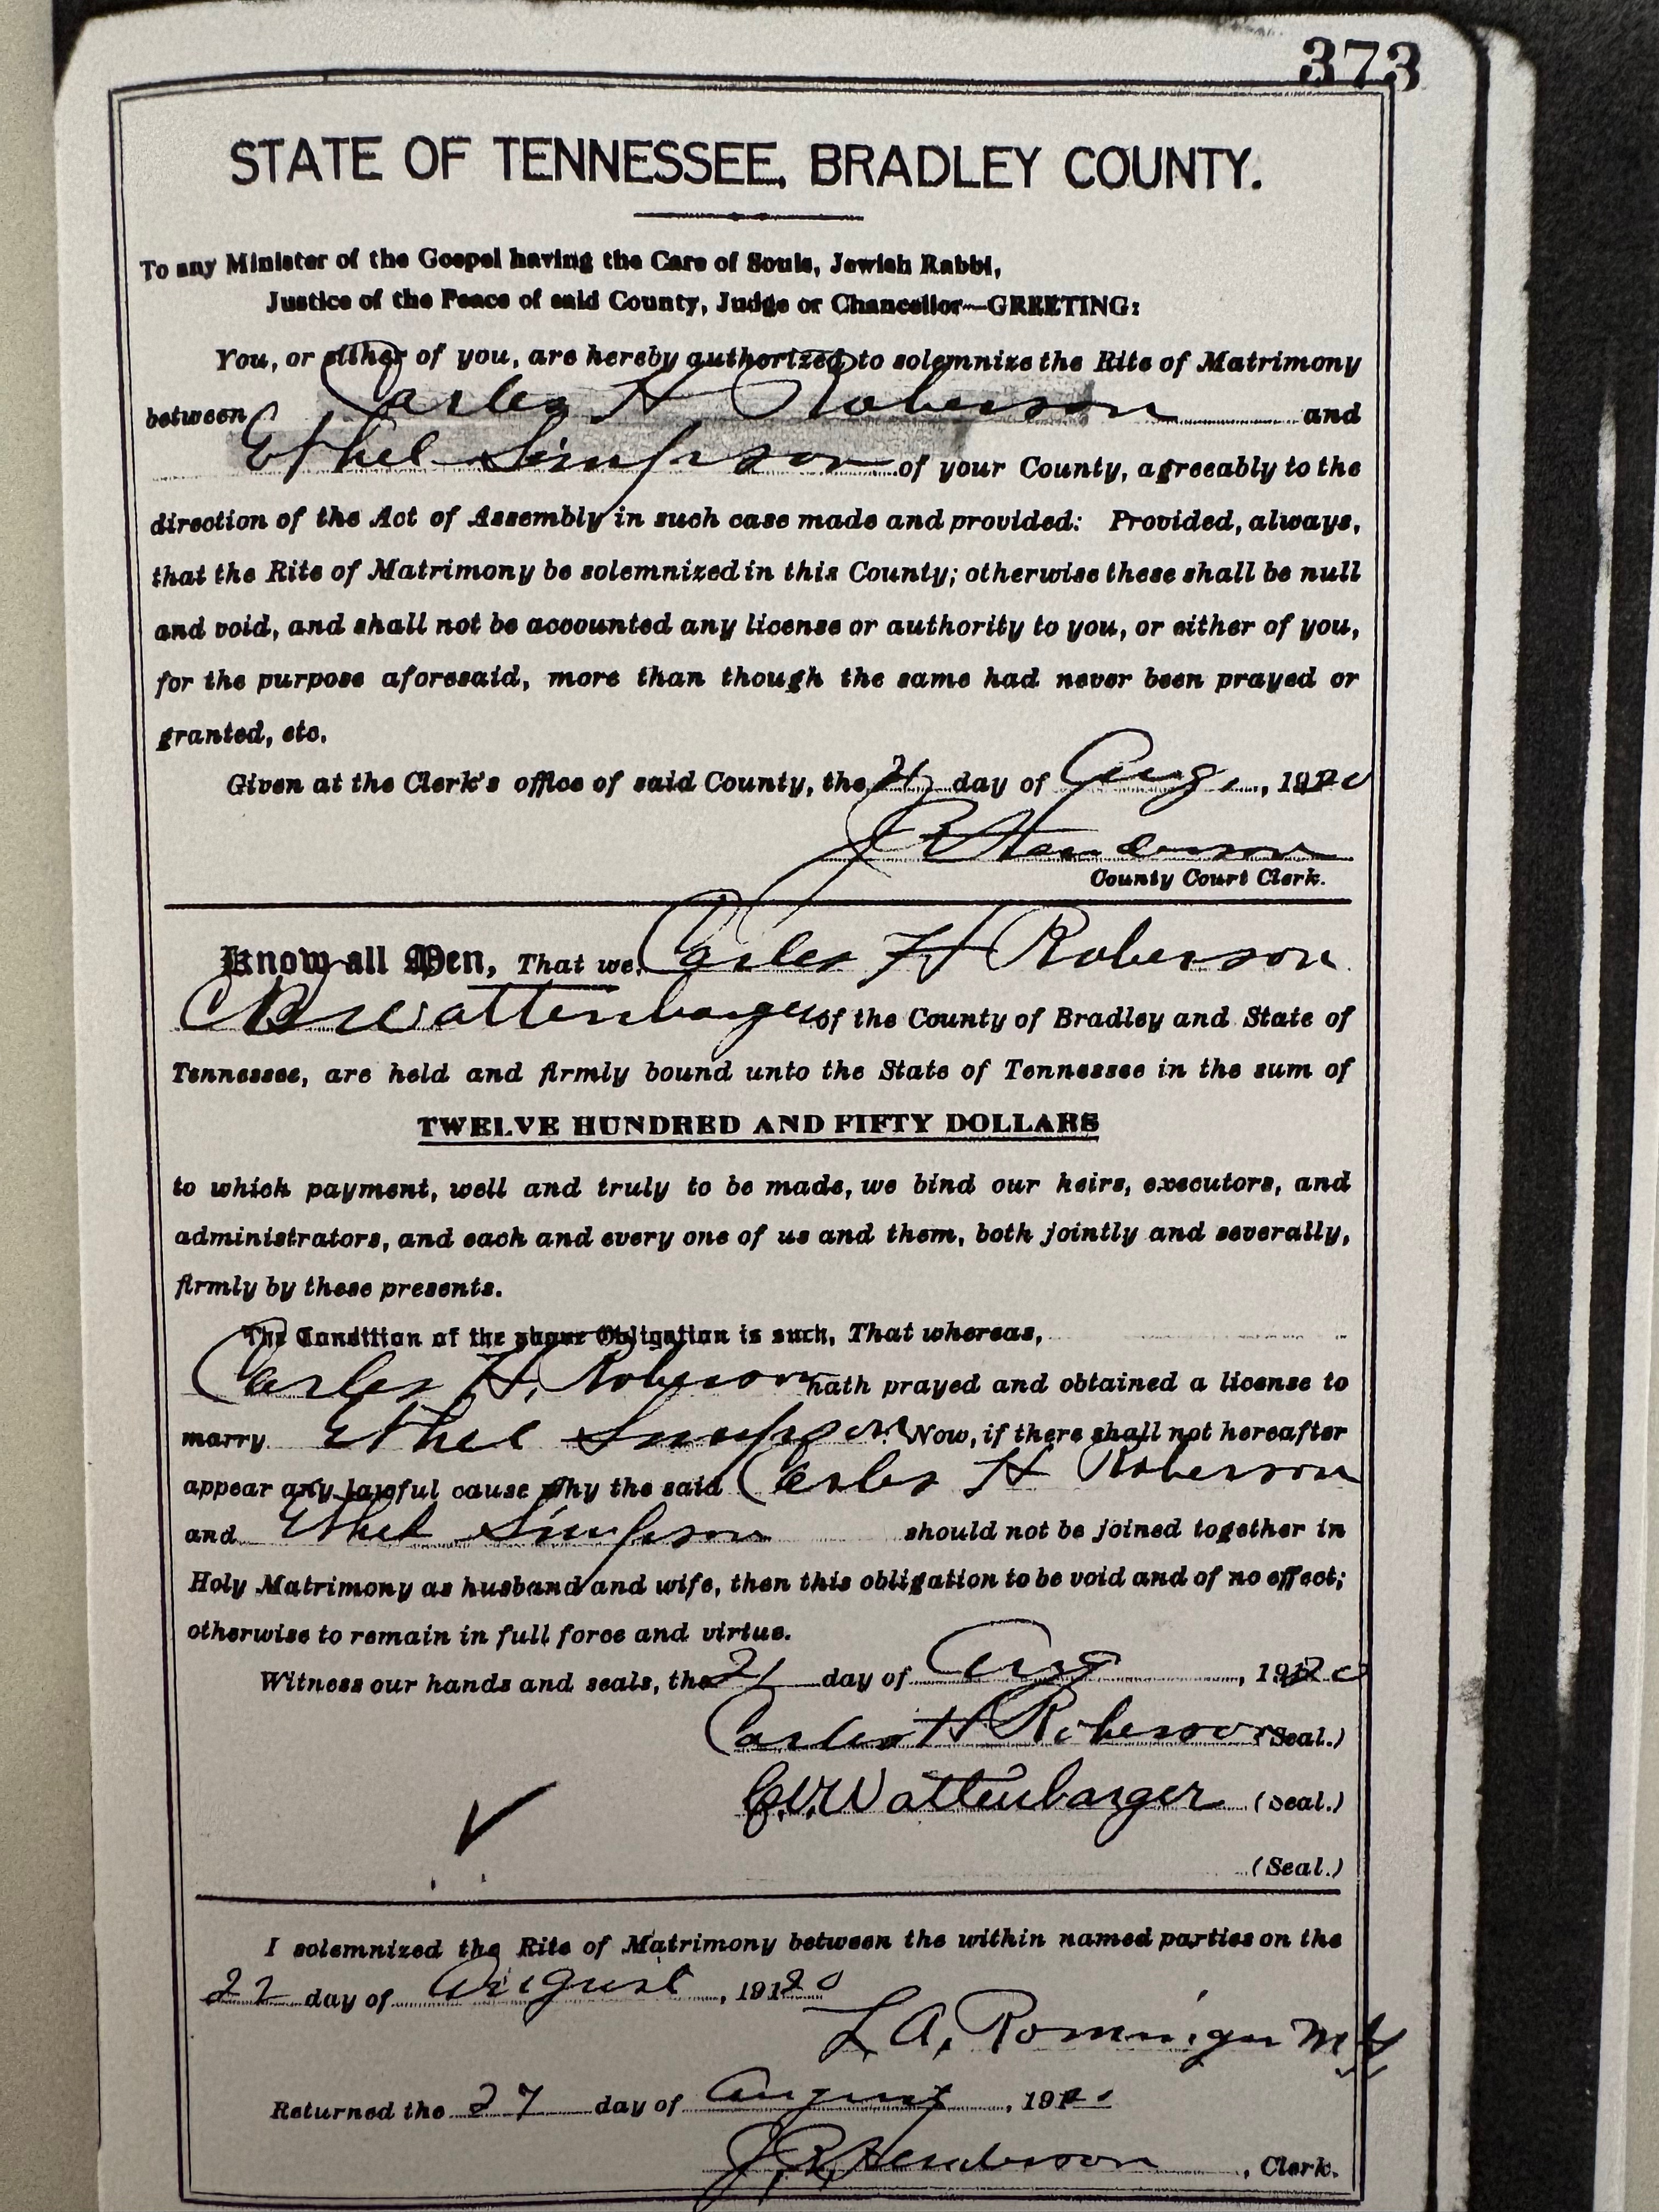 373
STATE OF TENNESSEE, BRADLEY COUNTY.
To any Minister of the Gospel having the Care of Souls, Jewish Rabbi,
Justice of the Peace of said County, Judge or Chancellor—GREETING:
You, or either of you, are hereby authorized to solemnize the Rite of Matrimony
between Carles H Roberson and
Ethel Simpson of your County, agreeably to the
direction of the Act of Assembly in such case made and provided: Provided, always,
that the Rite of Matrimony be solemnized in this County; otherwise these shall be null
and void, and shall not be accounted any license or authority to you, or either of you,
for the purpose aforesaid, more than though the same had never been prayed or
granted, etc.
Given at the Clerk's office of said County, the 21 day of Aug, 1920
J R Henderson
County Court Clerk.
Know all Men, That we, Carles H Roberson
Wattenbarger of the County of Bradley and State of
Tennessee, are held and firmly bound unto the State of Tennessee in the sum of
TWELVE HUNDRED AND FIFTY DOLLARS
to which payment, well and truly to be made, we bind our heirs, executors, and
administrators, and each and every one of us and them, both jointly and severally,
firmly by these presents.
The Condition of the above Obligation is such, That whereas,
Carles H. Roberson hath prayed and obtained a license to
marry Ethel Simpson Now, if there shall not hereafter
appear any lawful cause why the said Carles H Roberson
and Ethel Simpson should not be joined together in
Holy Matrimony as husband and wife, then this obligation to be void and of no effect;
otherwise to remain in full force and virtue.
Witness our hands and seals, the 21 day of Aug, 1920
Carles H Roberson (Seal.)
Wattenbarger (Seal.)
(Seal.)
I solemnized the Rite of Matrimony between the within named parties on the
22 day of August, 1920
L A. Rominger
Returned the 27 day of August, 1920
J R Henderson, Clerk.